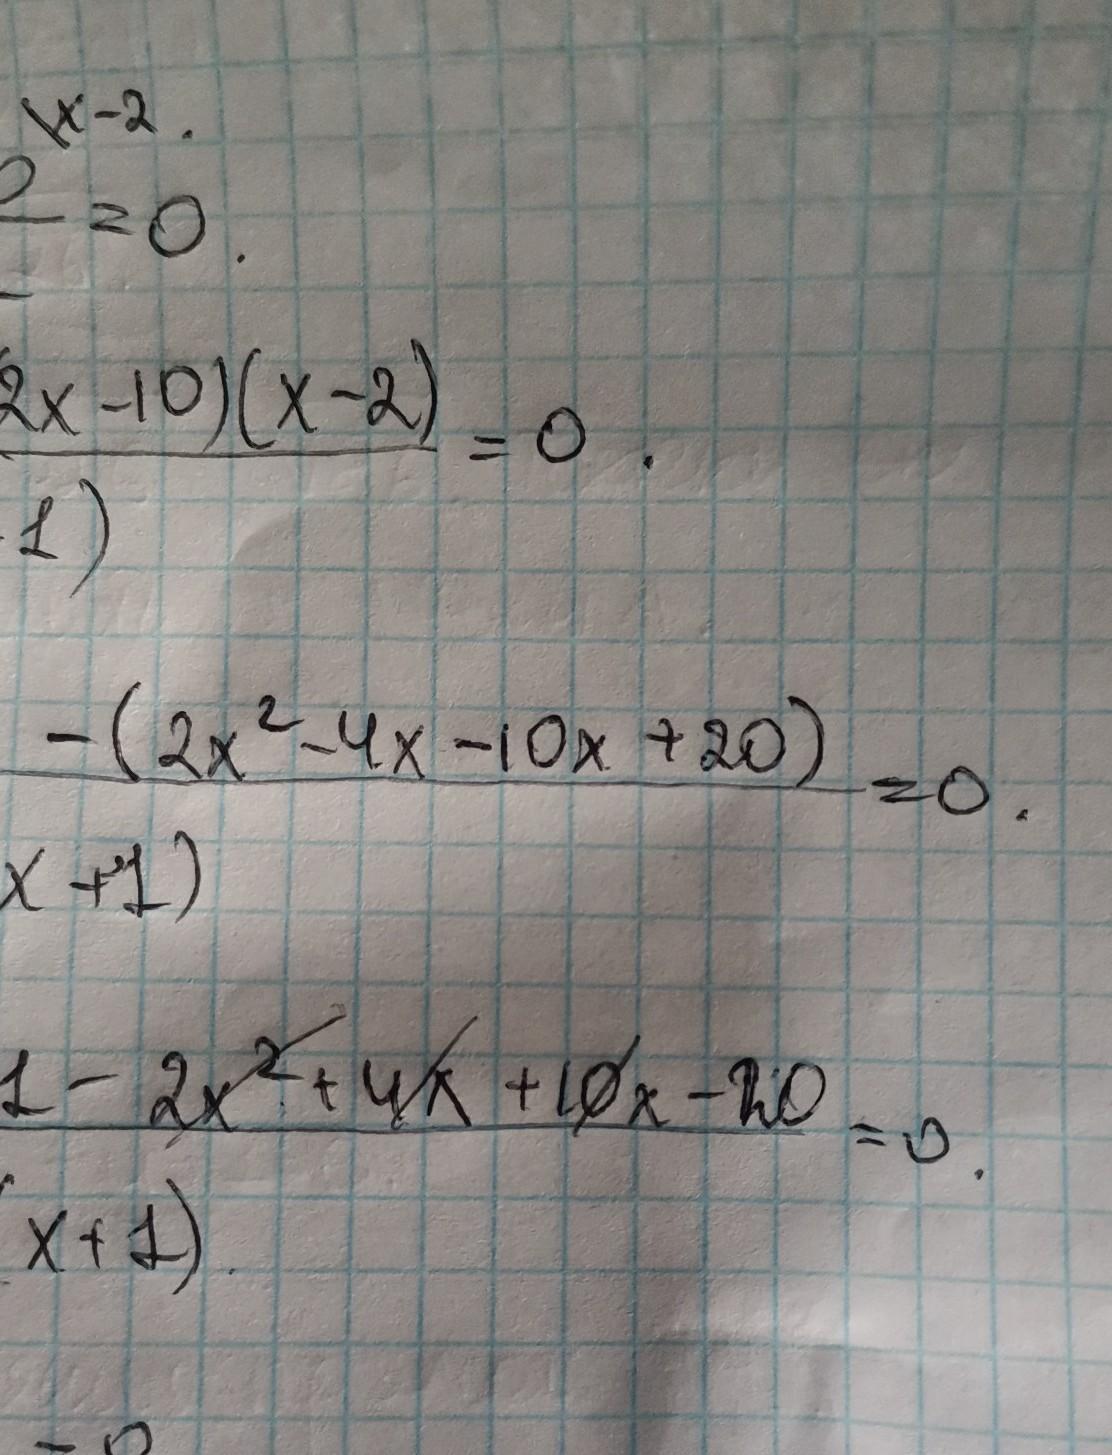 \x-2.
0 = 0.
2x-10)(x-2) = 0.
1)
-(2x²-4x-10x+20) = 0.
x+1)
1 - 2x²+4x+10x-20 = 0.
(x+1).
= 0